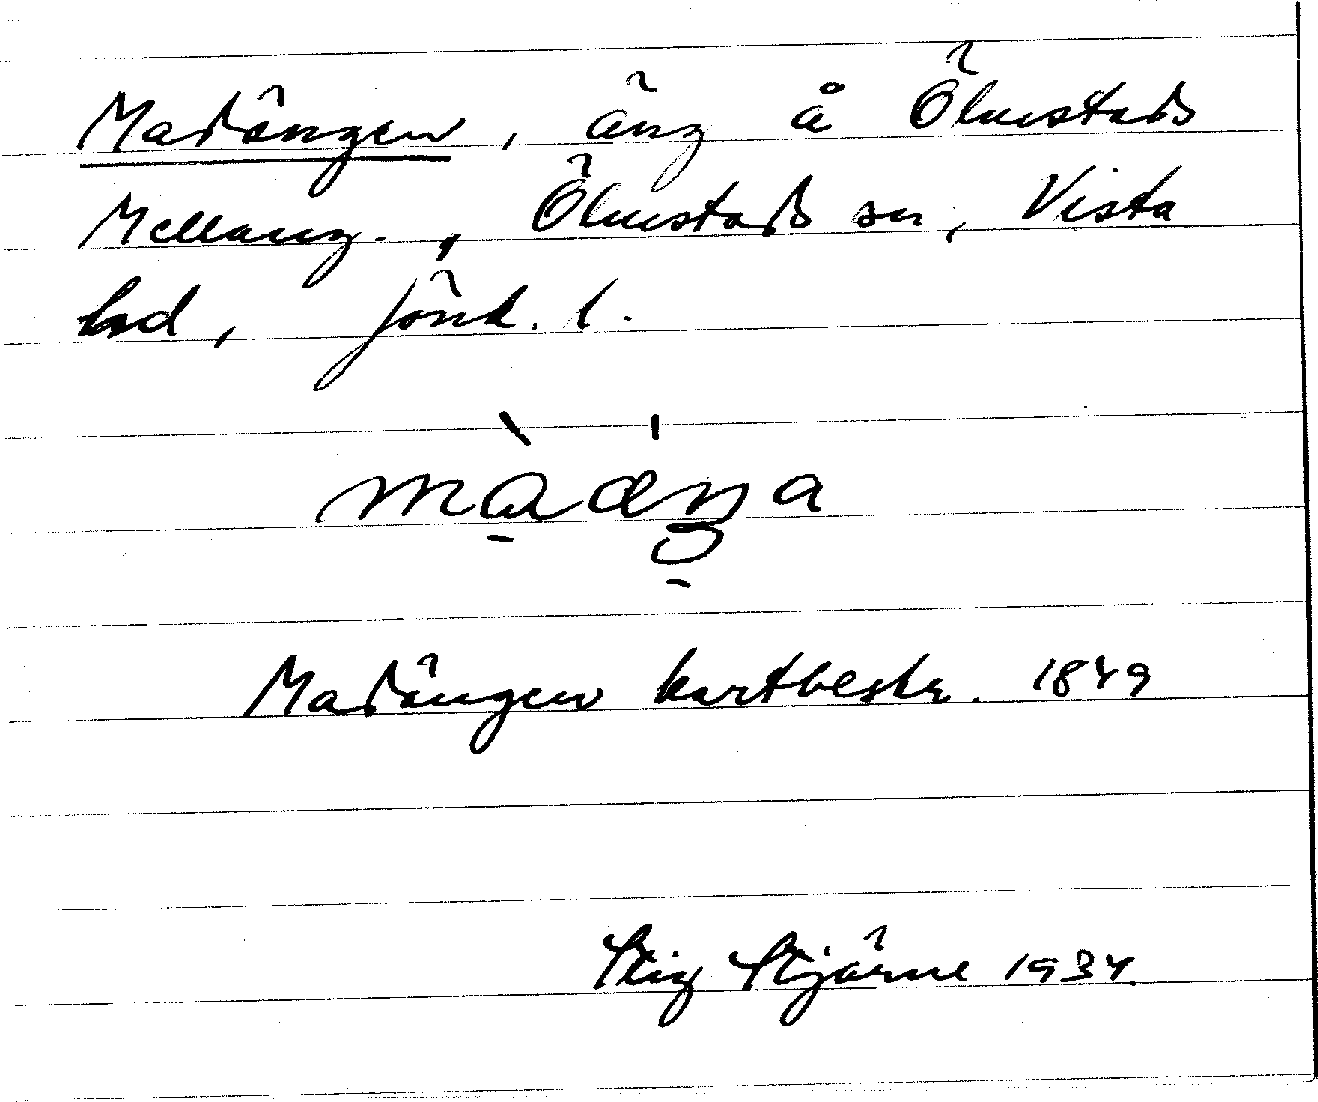 Madängen, äng å Ölmstads
Mellang., Ölmstads sn, Vista
hd, Jönk. l.
Madängen kartbeskr. 1849
Stig Stjärne 1934.